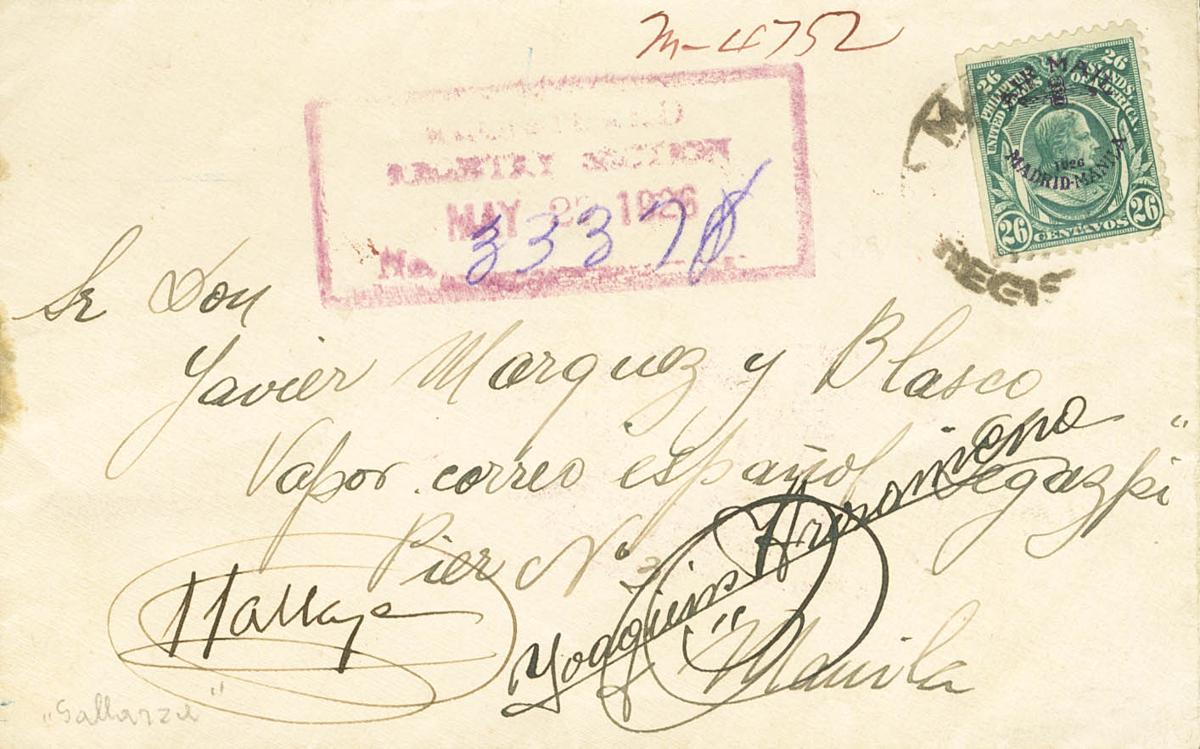 m-4752
26 26
PHILIPPINE ISLANDS
UNITED STATES OF AMERICA
AIR MAIL
1926
MADRID-MANILA
26 CENTAVOS 26
REGISTRY SECTION
MAY 1926
No. 33378
REG
Sr Don
Javier Marquez y Blasco
Vapor correo español "Legazpi"
Pier Nº 3
Manila
Yoaquin Arozamena
"Gallarza"